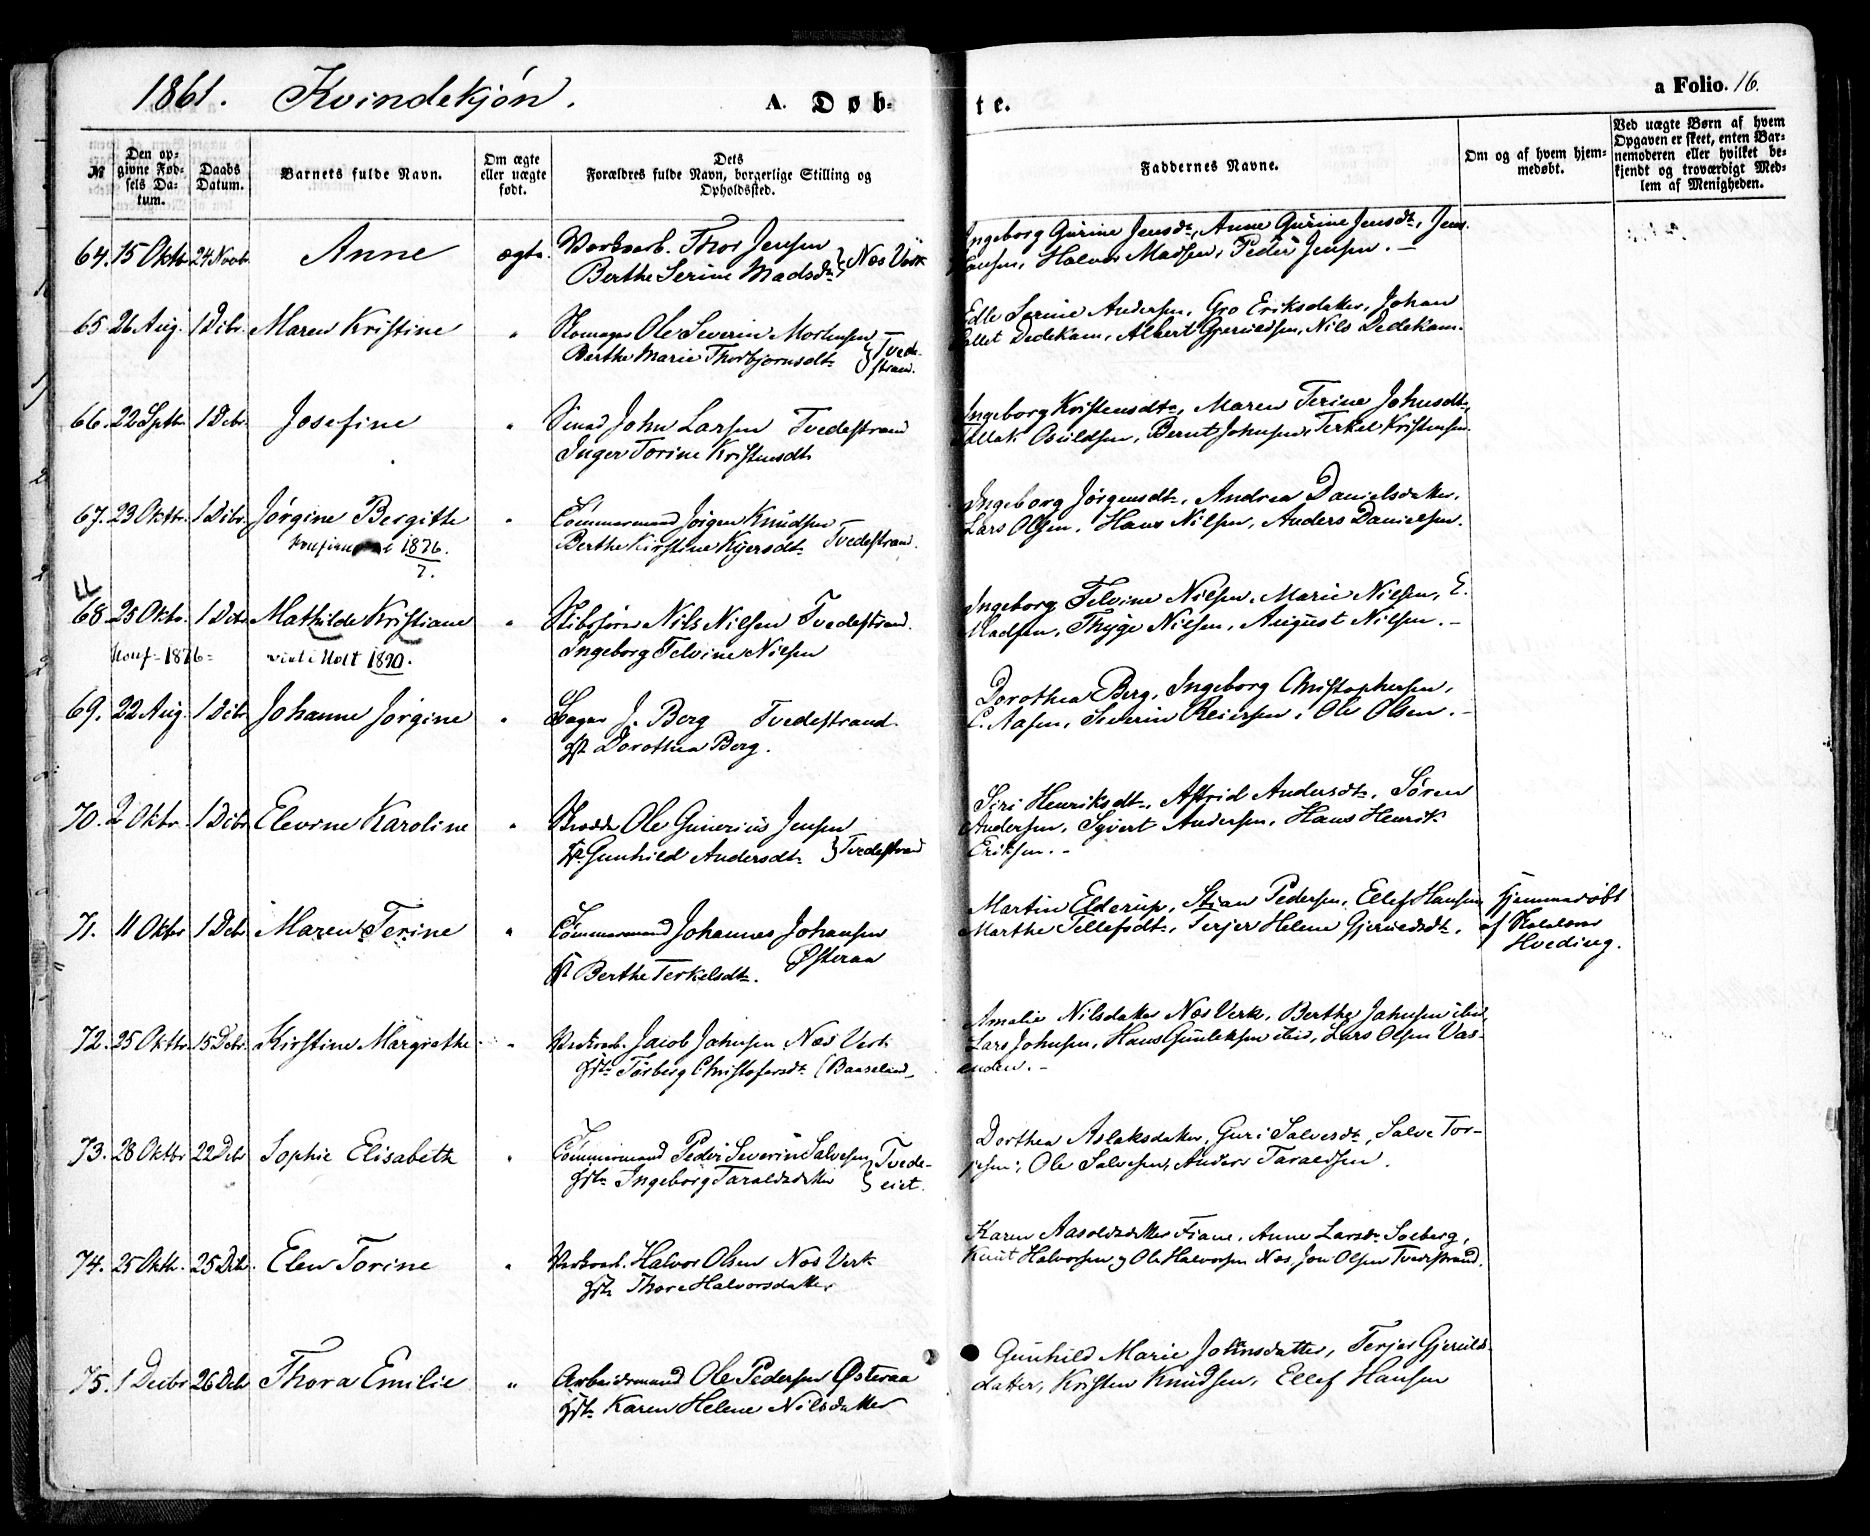 1861. Kvindekjøn. A. Døbte. a Folio. 16.
№
Den op-
givne Fød-
sels Da-
tum.
Daabs
Datum.
Barnets fulde Navn.
Om ægte
eller uægte
født.
Dets
Forældres fulde Navn, borgerlige Stilling og
Opholdssted.
Faddernes Navne.
Om og af hvem hjem-
medøbt.
Ved uægte Børn af hvem
Opgaven er skeet, enten Bar-
nemoderen eller hvilket be-
kjendt og troværdigt Med-
lem af Menigheden.
64. 15 Oktbr 24 Novbr. Anne ægte. Værksarb. Thor Jensen
Berthe Serine Madsdtr } Næs Værk
Ingeborg Gurine Jensdtr, Anne Gurine Jensdtr, Jens
Hansen, Halvor Madsen, Peder Jensen. —
65. 26 Aug. 1 Dcbr. Maren Kristine " Skomager Ole Severin Mortensen
Berthe Marie Thorbjørnsdtr } Tvede-
strand.
Edle Serine Andersen, Gro Eriksdatter, Johan
Dedekam, Albert Gjeruldsen, Nils Dedekam.
66. 22 Septbr 1 Debr. Josefine " Smed John Larsen Tvedestrand
Inger Torine Kristensdtr
Ingeborg Kristensdtr, Maren Terine Johnsdtr,
Tellak Osuldsen, Bernt Johnsen, Terkel Kristensen.
67. 23 Oktbr. 1 Dcbr. Jørgine Bergithe " Tømmermand Jørgen Knudsen
konfirm i 1876.
7.
Berthe Kirstine Kjersdtr Tvedestrand.
Ingeborg Jørgensdtr, Andrea Danielsdatter,
Lars Olsen, Hans Nilsen, Anders Danielsen.
68 25 Oktbr. 1 Debr Mathilde Kristiane " Skibsfører Nils Nielsen Tvedestrand.
Konf. 1876 = viet i Holt 1890.
Ingeborg Telvine Nilsen
Ingeborg Telvine Nilsen, Marie Nielsen, E.
Madsen, Thyge Nielsen, August Nilsen. —
69. 22 Aug. 1 Debr Johanne Jørgine " Bager J. Berg Tvedestrand.
Hst Dorothea Berg.
Dorothea Berg, Ingeborg Christophersen,
C. Aasen, Severin Reiersen, Ole Olsen. —
70. 2 Oktbr. 1 Debr Elevine Karoline " Skrædder Ole Gunerius Jensen
Hst. Gunhild Andersdtr } Tvedestrand
Siri Henriksdtr, Astrid Andersdtr, Søren
Andersen, Syvert Andersen, Hans Henrik
Eriksen. —
71. 11 Oktbr 1 Debr Maren Terine " Tømmermand Johannes Johansen
Hst Berthe Terkelsdtr. Østeraa
Martin Elderup, Stian Pedersen, Ellef Hansen
Marthe Tellefsdtr, Terjer Helene Gjerueldsdtr.
Hjemmedøbt
af
Hveding.
72. 25 Oktbr 15 Debr. Kirstine Margrethe " Værksarb. Jacob Jahnsen Næs Verk
Hst. Torberg Christofersdtr (Baaseland)
Amalie Nilsdatter Næs Verk, Berthe Jahnsen ibid,
Lars Johnsen, Hans Gunleksen ibid, Lars Olsen Vas-
enden. —
73. 28 Oktbr 22 Debr Sophie Elisabeth " Tømmermand Peder Severin Salvesen
Hst. Ingeborg Taraldsdatter } Tvede-
eiet.
Dorthea Aslaksdatter, Guri Salvesdtr, Salve Tor-
jesen, Ole Salvesen, Anders Taraldsen.
74. 25 Oktbr. 25 Debr. Elen Torine " Værksarb. Halvor Olsen Næs Verk
Hst. Thore Halvorsdatter
Karen Aasoldsdatter Fiane, Anne Larsdtr Soeberg,
Knut Halvorsen, Ole Halvorsen Næs, Jon Olsen Tvedestrand.
75. 1 Decbr 26 Debr Thora Emilie " Arbeidsmand Ole Pedersen Østeraa
Hst. Karen Helene Nilsdatter
Gunhild Marie Johnsdatter, Terjer Gjerulds-
datter, Kristen Knudsen, Ellef Hansen